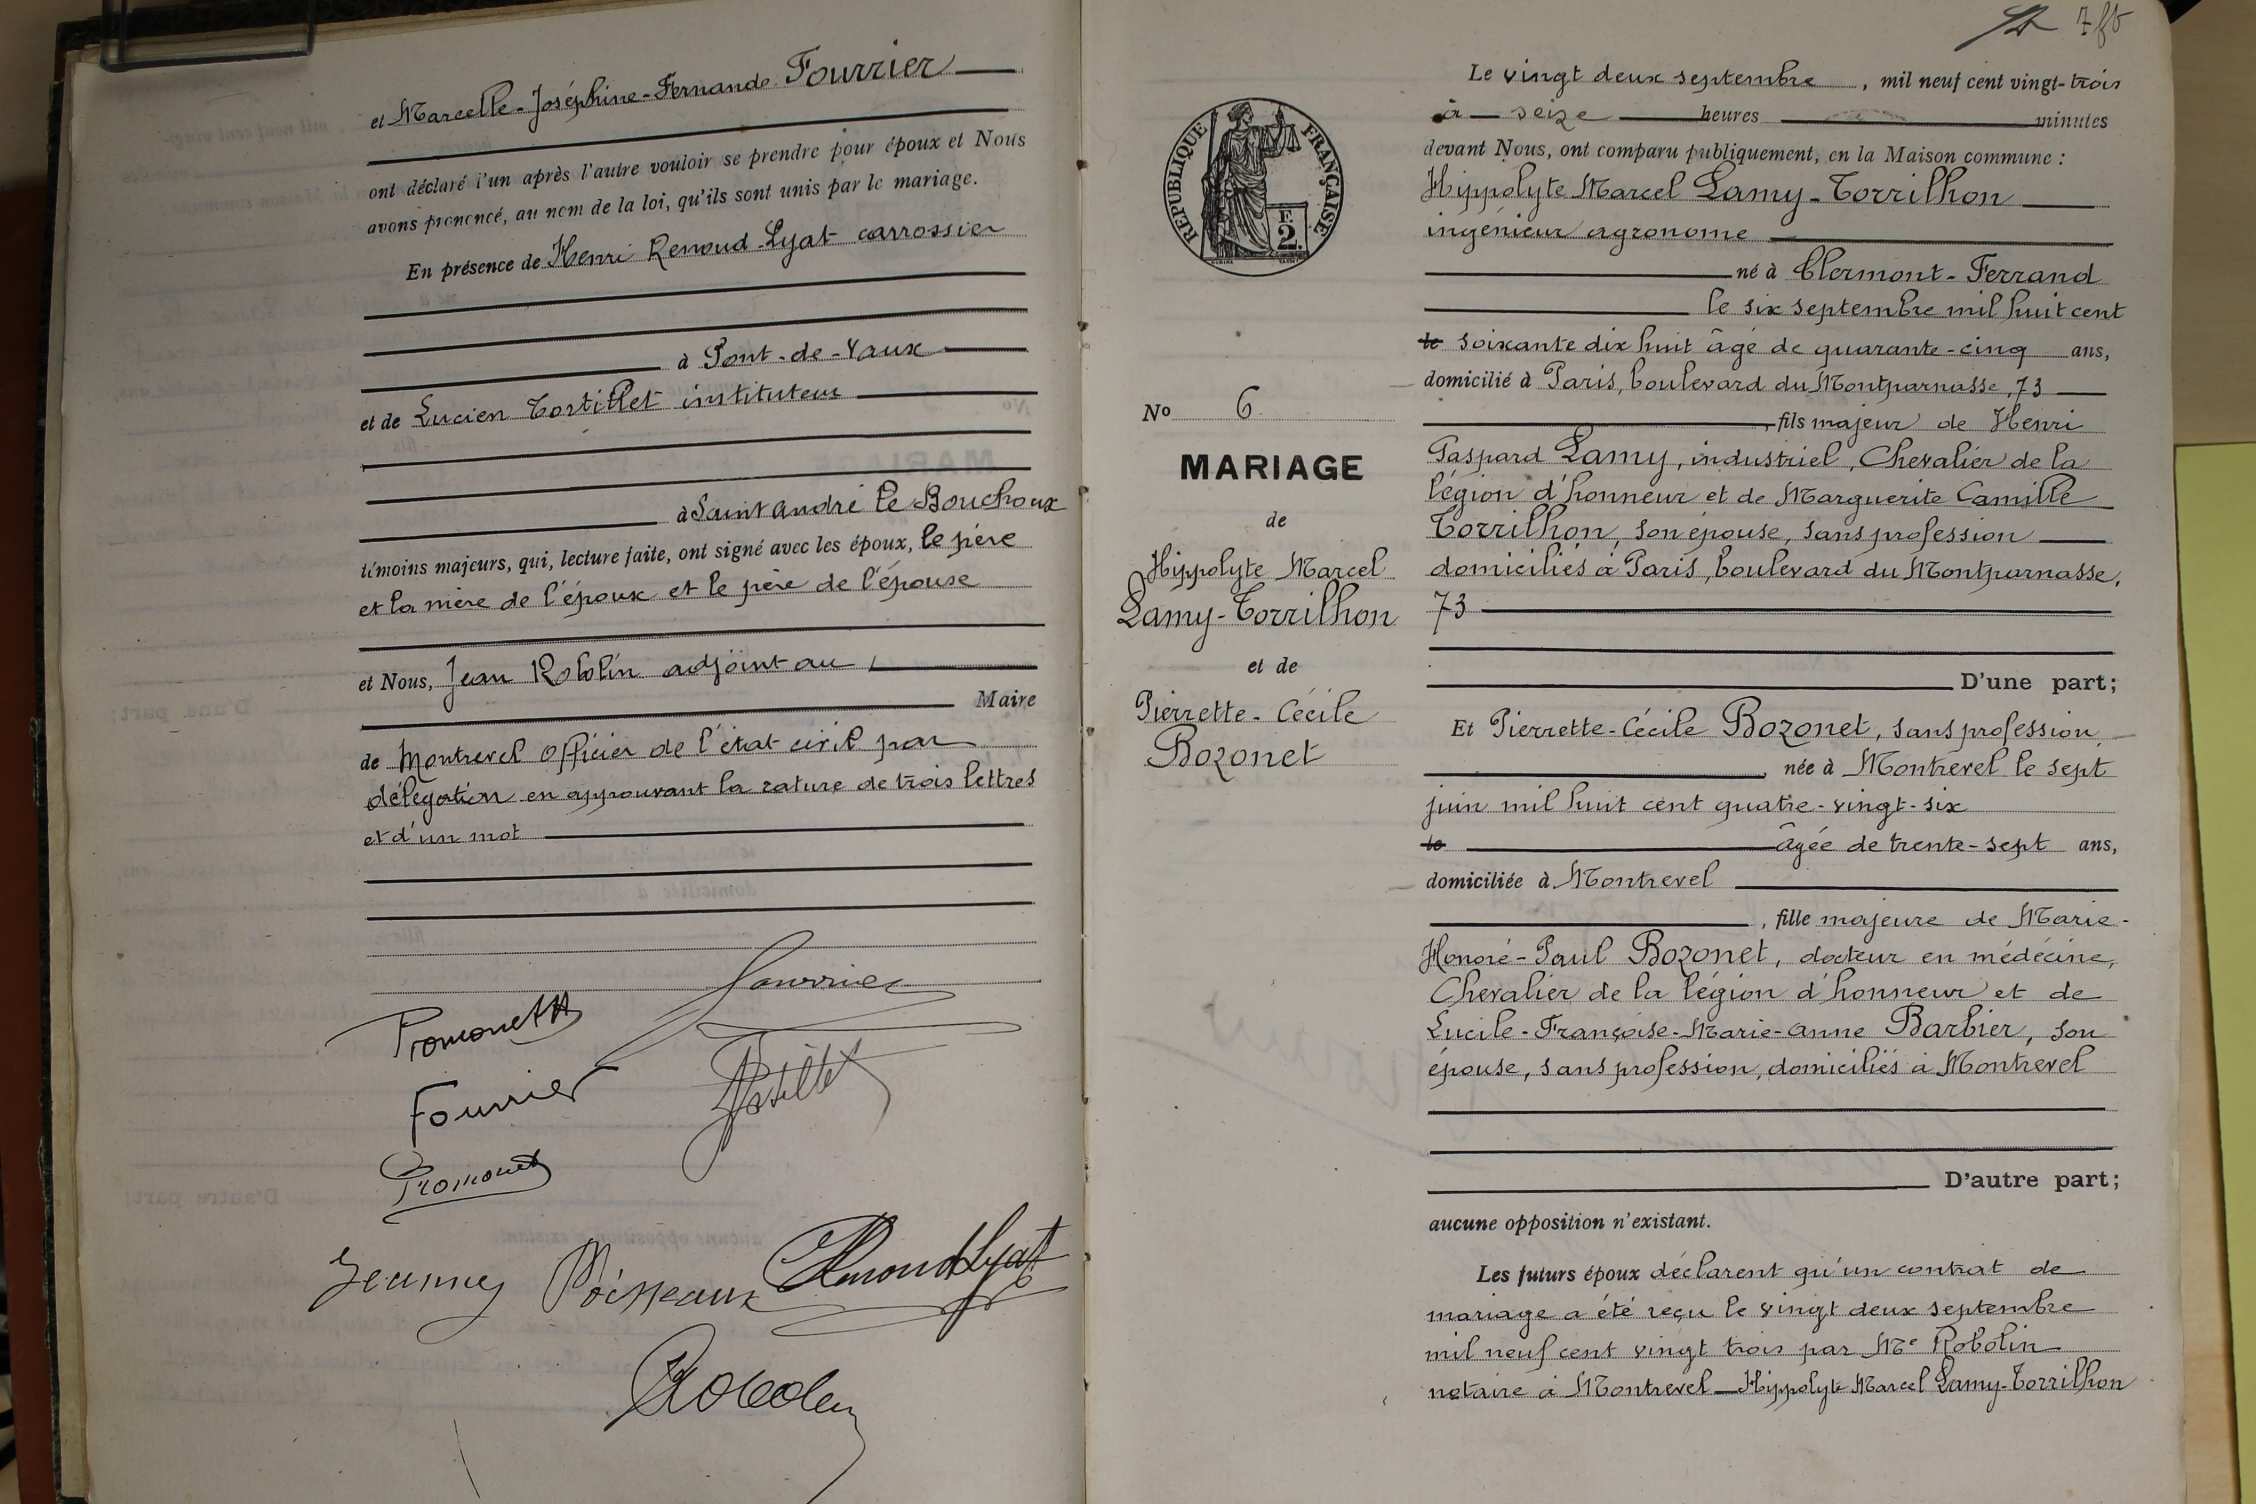 et Marcelle-Joséphine-Fernande Fourrier
ont déclaré l'un après l'autre vouloir se prendre pour époux et Nous
avons prononcé, au nom de la loi, qu'ils sont unis par le mariage.
En présence de Henri Renoud-Lyat carrossier
à Pont-de-Vaux
et de Lucien Tortillet instituteur
à Saint André le Bouchoux
témoins majeurs, qui, lecture faite, ont signé avec les époux, le père
et la mère de l'époux et le père de l'épouse
et Nous, Jean Robolin adjoint au
Maire
de Montrevel officier de l'état civil par
délégation en approuvant la rature de trois lettres
et d'un mot
Fourrier
Promonet
Tortillet
Fourrier
Promonet
Jeanne Poisseaux Renoud Lyat
Robolin
7
Le vingt deux septembre, mil neuf cent vingt-trois
à seize heures minutes
devant Nous, ont comparu publiquement, en la Maison commune :
Hippolyte Marcel Lamy-Torrilhon
ingénieur agronome
né à Clermont-Ferrand
le six septembre mil huit cent
le soixante dix huit âgé de quarante-cinq ans,
domicilié à Paris, boulevard du Montparnasse, 73
, fils majeur de Henri
Gaspard Lamy, industriel, Chevalier de la
légion d'honneur et de Marguerite Camille
Torrilhon, son épouse, sans profession
domiciliés à Paris, boulevard du Montparnasse,
73
D'une part;
Et Pierrette-Cécile Bozonet, sans profession
, née à Montrevel le sept
juin mil huit cent quatre-vingt-six
le âgée de trente-sept ans,
domiciliée à Montrevel
, fille majeure de Marie-
Honoré-Paul Bozonet, docteur en médécine,
Chevalier de la légion d'honneur et de
Lucile-Françoise-Marie-Anne Barbier, son
épouse, sans profession, domiciliés à Montrevel
D'autre part;
aucune opposition n'existant.
Les futurs époux déclarent qu'un contrat de
mariage a été reçu le vingt deux septembre
mil neuf cent vingt trois par Me Robolin
notaire à Montrevel Hippolyte Marcel Lamy-Torrilhon
RÉPUBLIQUE FRANÇAISE
F.
2.
No 6
MARIAGE
de
Hippolyte Marcel
Lamy-Torrilhon
et de
Pierrette-Cécile
Bozonet